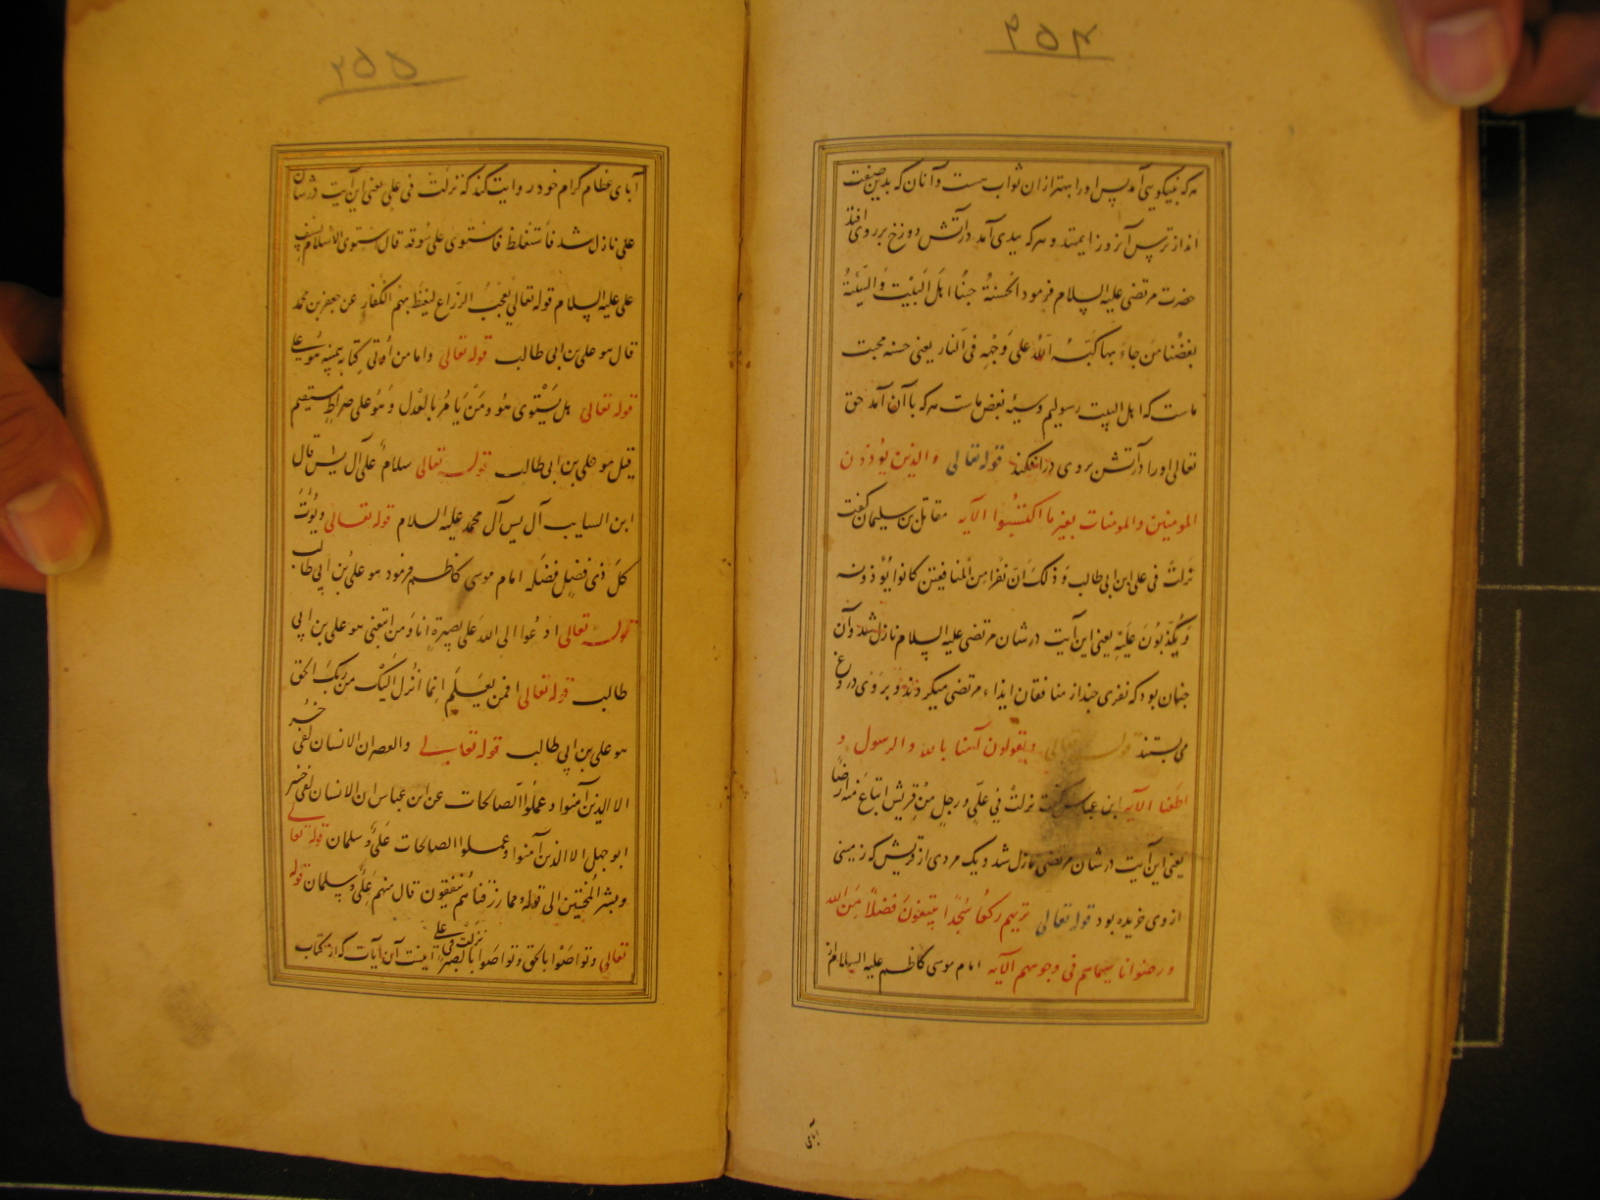 ۲۵۴
هر که نیکویی آمد پس او را بهتر از ان ثواب هست و آنان که بدین صفت
اند از ترس آنروز ایمنند و هر که ببدی آمد در آتش دوزخ بر روی افتد
حضرت مرتضی علیه السلام فرمود الحسنة حبنا اهل البیت و السیئة
بغضنا من جاء بها کبه الله علی وجهه فی النار یعنی حسنه محبت
ماست که اهل البیت رسولیم و سیئه بغض ماست هر که با آن آمد حق
تعالی او را در آتش بروی در افکند قوله تعالی والذین یؤذون
المومنین والمومنات بغیر ما اکتسبوا الآیه مقاتل بن سلیمان گفت
نزلت فی علی ابن ابی طالب و ذلک ان نفرا من المنافقین کانوا یؤذونه
و یکذبون علیه یعنی این آیت در شان مرتضی علیه السلام نازل شد و آن
چنان بود که نفری چند از منافقان ایذاء مرتضی میکردند و بر وی دروغ
می بستند قوله تعالی ویقولون آمنا بالله و الرسول و
اطعنا الآیه ابن عباس گفت نزلت فی علی و رجل من قریش ابتاع منه ارضا
یعنی این آیت در شان مرتضی نازل شد و یک مردی از قریش که زمینی
از وی خریده بود قوله تعالی تریهم رکعا سجدا یبتغون فضلا من الله
و رضوانا سیماهم فی وجوههم الآیه امام موسی کاظم علیه السلام از
آبای
۲۵۵
آبای عظام کرام خود روایت کند که نزلت فی علی یعنی این آیت در شان
علی نازل شد فاستغلظ فاستوی علی سوقه قال استوی الاسلام بسیف
علی علیه السلام قوله تعالی یعجب الزراع لیغیظ بهم الکفار عن جعفر بن محمد
قال هو علی بن ابی طالب قوله تعالی واما من اوتی کتابه بیمینه هو علی
قوله تعالی هل یستوی هو ومن یامر بالعدل و هو علی صراط مستقیم
قیل هو علی بن ابی طالب قوله تعالی سلام علی آل یس قال
ابن السایب آل یس آل محمد علیه السلام قوله تعالی ویؤت
کل ذی فضل فضله امام موسی کاظم فرمود هو علی بن ابی طالب
قوله تعالی ادعوا الی الله علی بصیرة انا ومن اتبعنی هو علی بن ابی
طالب قوله تعالی افمن یعلم انما انزل الیک من ربک الحق
هو علی بن ابی طالب قوله تعالی والعصر ان الانسان لفی خسر
الا الذین آمنوا وعملوا الصالحات عن ابن عباس ان الانسان لفی خسر
ابو جهل الا الذین آمنوا وعملوا الصالحات علی و سلمان قوله تعالی
وبشر المخبتین الی قوله ومما رزقناهم ینفقون قال منهم علی و سلمان قوله
تعالی وتواصوا بالحق وتواصوا بالصبر نزلت فی علی اینست آن آیات که از کتاب